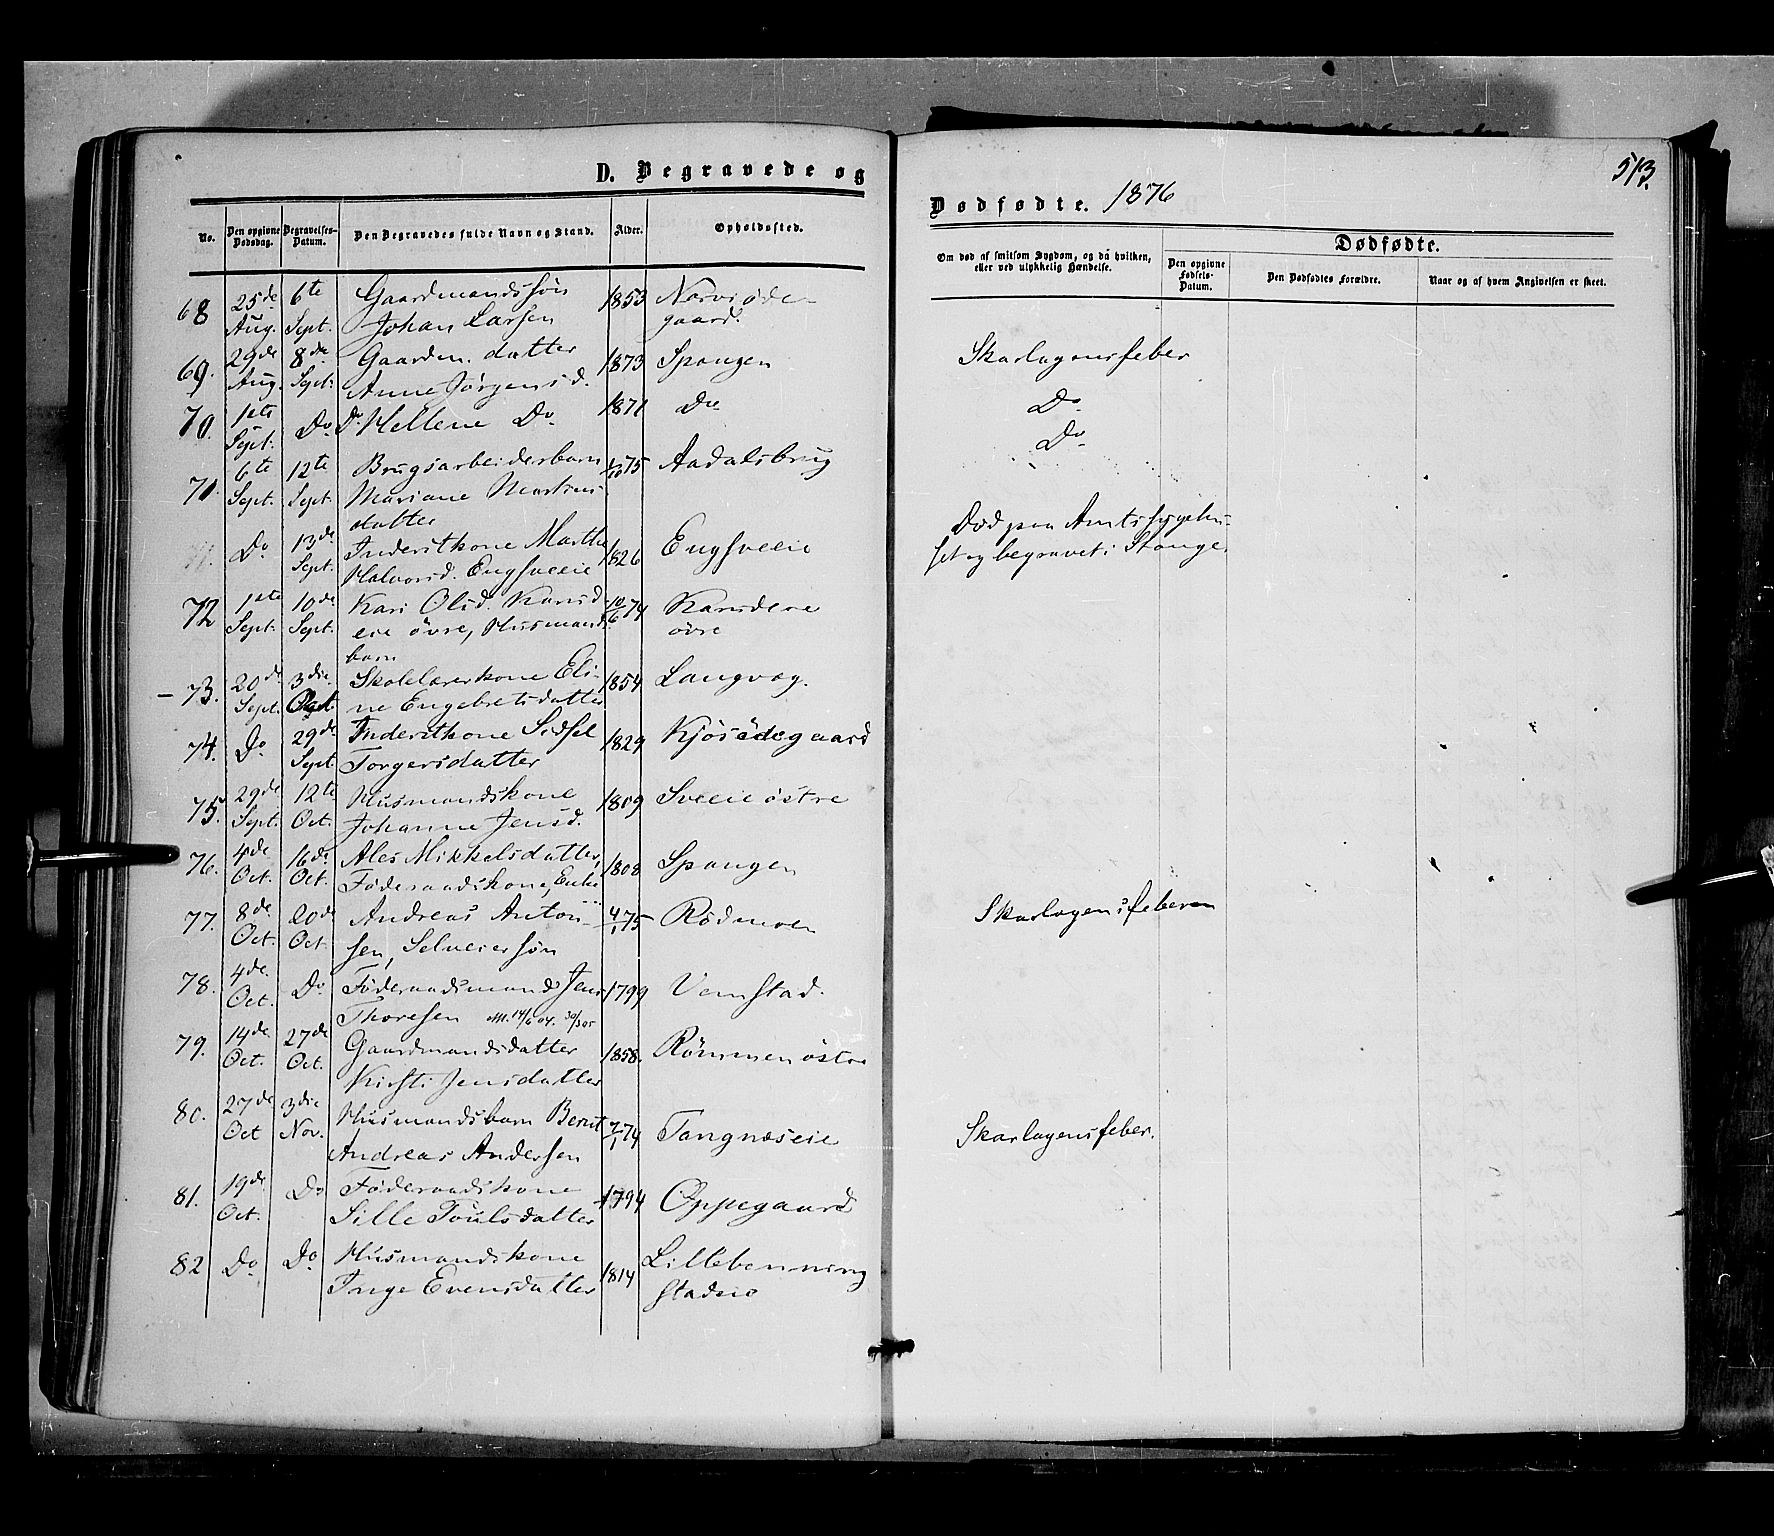 D. Begravede og
No.
Den opgivne Dødsdag.
Begravelses-Datum.
Den Begravedes fulde Navn og Stand.
Alder.
Opholdssted.
68 25de Aug. 6te Sept. Gaardmandssøn Johan Larsen 1853 Norvi ødegaard.
69. 29de Aug. 8de Sept. Gaardm. datter Anne Jørgensd. 1873 Spangen
70. 1ste Sept. Do Do Hellene Do. 1871 Do
71. 6te Sept. 12te Sept. Brugsarbeiderbarn Mariane Martinsdatter 75 Aadalsbrug
Do 13de Sept. Inderstkone Marthe Halvorsd. Engsveeie 1826 Engsveeie
72 1ste Sept. 10de Sept. Kari Olsd. eie øvre, Husmandsbarn 10/6 74 øvre
73. 20de Sept. 3die Oct. Skolelærerkone Eline Engebretsdatter 1854 Langvag.
74. Do 29de Sept. Inderstkone Sidsel Torgersdatter 1829 Kjøsødegaard
75. 29de Sept. 12te Oct. Husmandskone Johanne Jensd. 1809 Sveeie østre
76. 4de Oct. 16de Oct. Ales Mikkelsdatter, Føderaadskone, Enke 1808 Spangen
77. 8de Oct. 20de Oct. Andreas Antonsen, Selveiersøn 4/1 75 Rødmoen
78. 4de Oct. Do Føderaadsmand Jens Thoresen M. 14/6 04. 30/3 05 1799 Vemstad.
79. 14de Oct. 27de Oct. Gaardmandsdatter Kirsti Jensdatter 1858. Rømmen østre
80. 27de Oct 3die Nov. Husmandsbarn Bernt Andreas Andersen 7/1 74 Tangnæseie
81. 19de Oct. Do Føderaadskone Sille Poulsdatter 1794 Oppegaard
82 Do. Do. Husmandskone Inge Evensdatter 1814 Lillebenningstadeie
Dødfødte. 1876
513.
Om død af smitsom Sygdom, og da hvilken,
eller ved ulykkelig Hændelse.
Dødfødte.
Den opgivne Fødsels-Datum.
Den Dødfødtes Forældre.
Naar og af hvem Angivelsen er skeet.
Skarlagensfeber
Do.
Do.
Død paa Amtssygehu-
set og begravet i Stange.
Skarlagensfeberen
Skarlagensfeber.